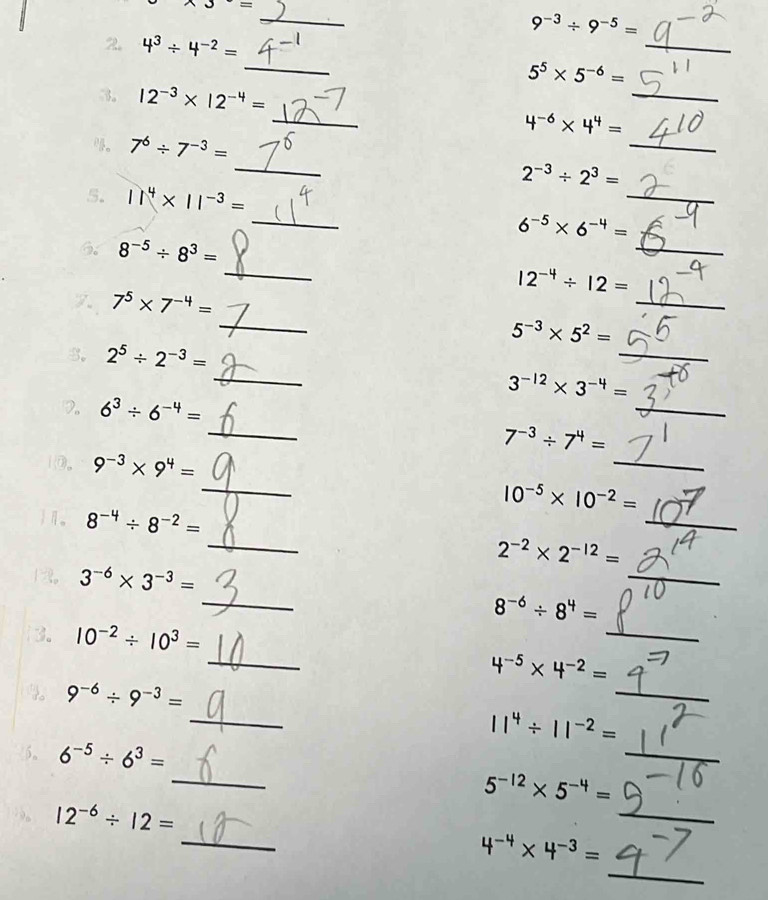 2. 4³ ÷ 4⁻² = 4⁻¹
3. 12⁻³ × 12⁻⁴ = 12⁻⁷
4. 7⁶ ÷ 7⁻³ = 7⁶
5. 11⁴ × 11⁻³ = 11⁴
6. 8⁻⁵ ÷ 8³ = 8
7. 7⁵ × 7⁻⁴ = 7
8. 2⁵ ÷ 2⁻³ = 2
9. 6³ ÷ 6⁻⁴ = 6
10. 9⁻³ × 9⁴ = 9
11. 8⁻⁴ ÷ 8⁻² = 8
12. 3⁻⁶ × 3⁻³ = 3
13. 10⁻² ÷ 10³ = 10
9⁻⁶ ÷ 9⁻³ = 9
6⁻⁵ ÷ 6³ = 6
12⁻⁶ ÷ 12 = 12
9⁻³ ÷ 9⁻⁵ = 9⁻²
5⁵ × 5⁻⁶ = 5¹¹
4⁻⁶ × 4⁴ = 4¹⁰
2⁻³ ÷ 2³ = 2
6⁻⁵ × 6⁻⁴ = 6⁻⁹
12⁻⁴ ÷ 12 = 12⁻⁴
5⁻³ × 5² = 5⁵
3⁻¹² × 3⁻⁴ = 3
7⁻³ ÷ 7⁴ = 7¹
10⁻⁵ × 10⁻² = 10⁷
2⁻² × 2⁻¹² = 2¹⁴
8⁻⁶ ÷ 8⁴ = 8¹⁰
4⁻⁵ × 4⁻² = 4⁻⁷
11⁴ ÷ 11⁻² = 11²
5⁻¹² × 5⁻⁴ = 5⁻¹⁶
4⁻⁴ × 4⁻³ = 4⁻⁷